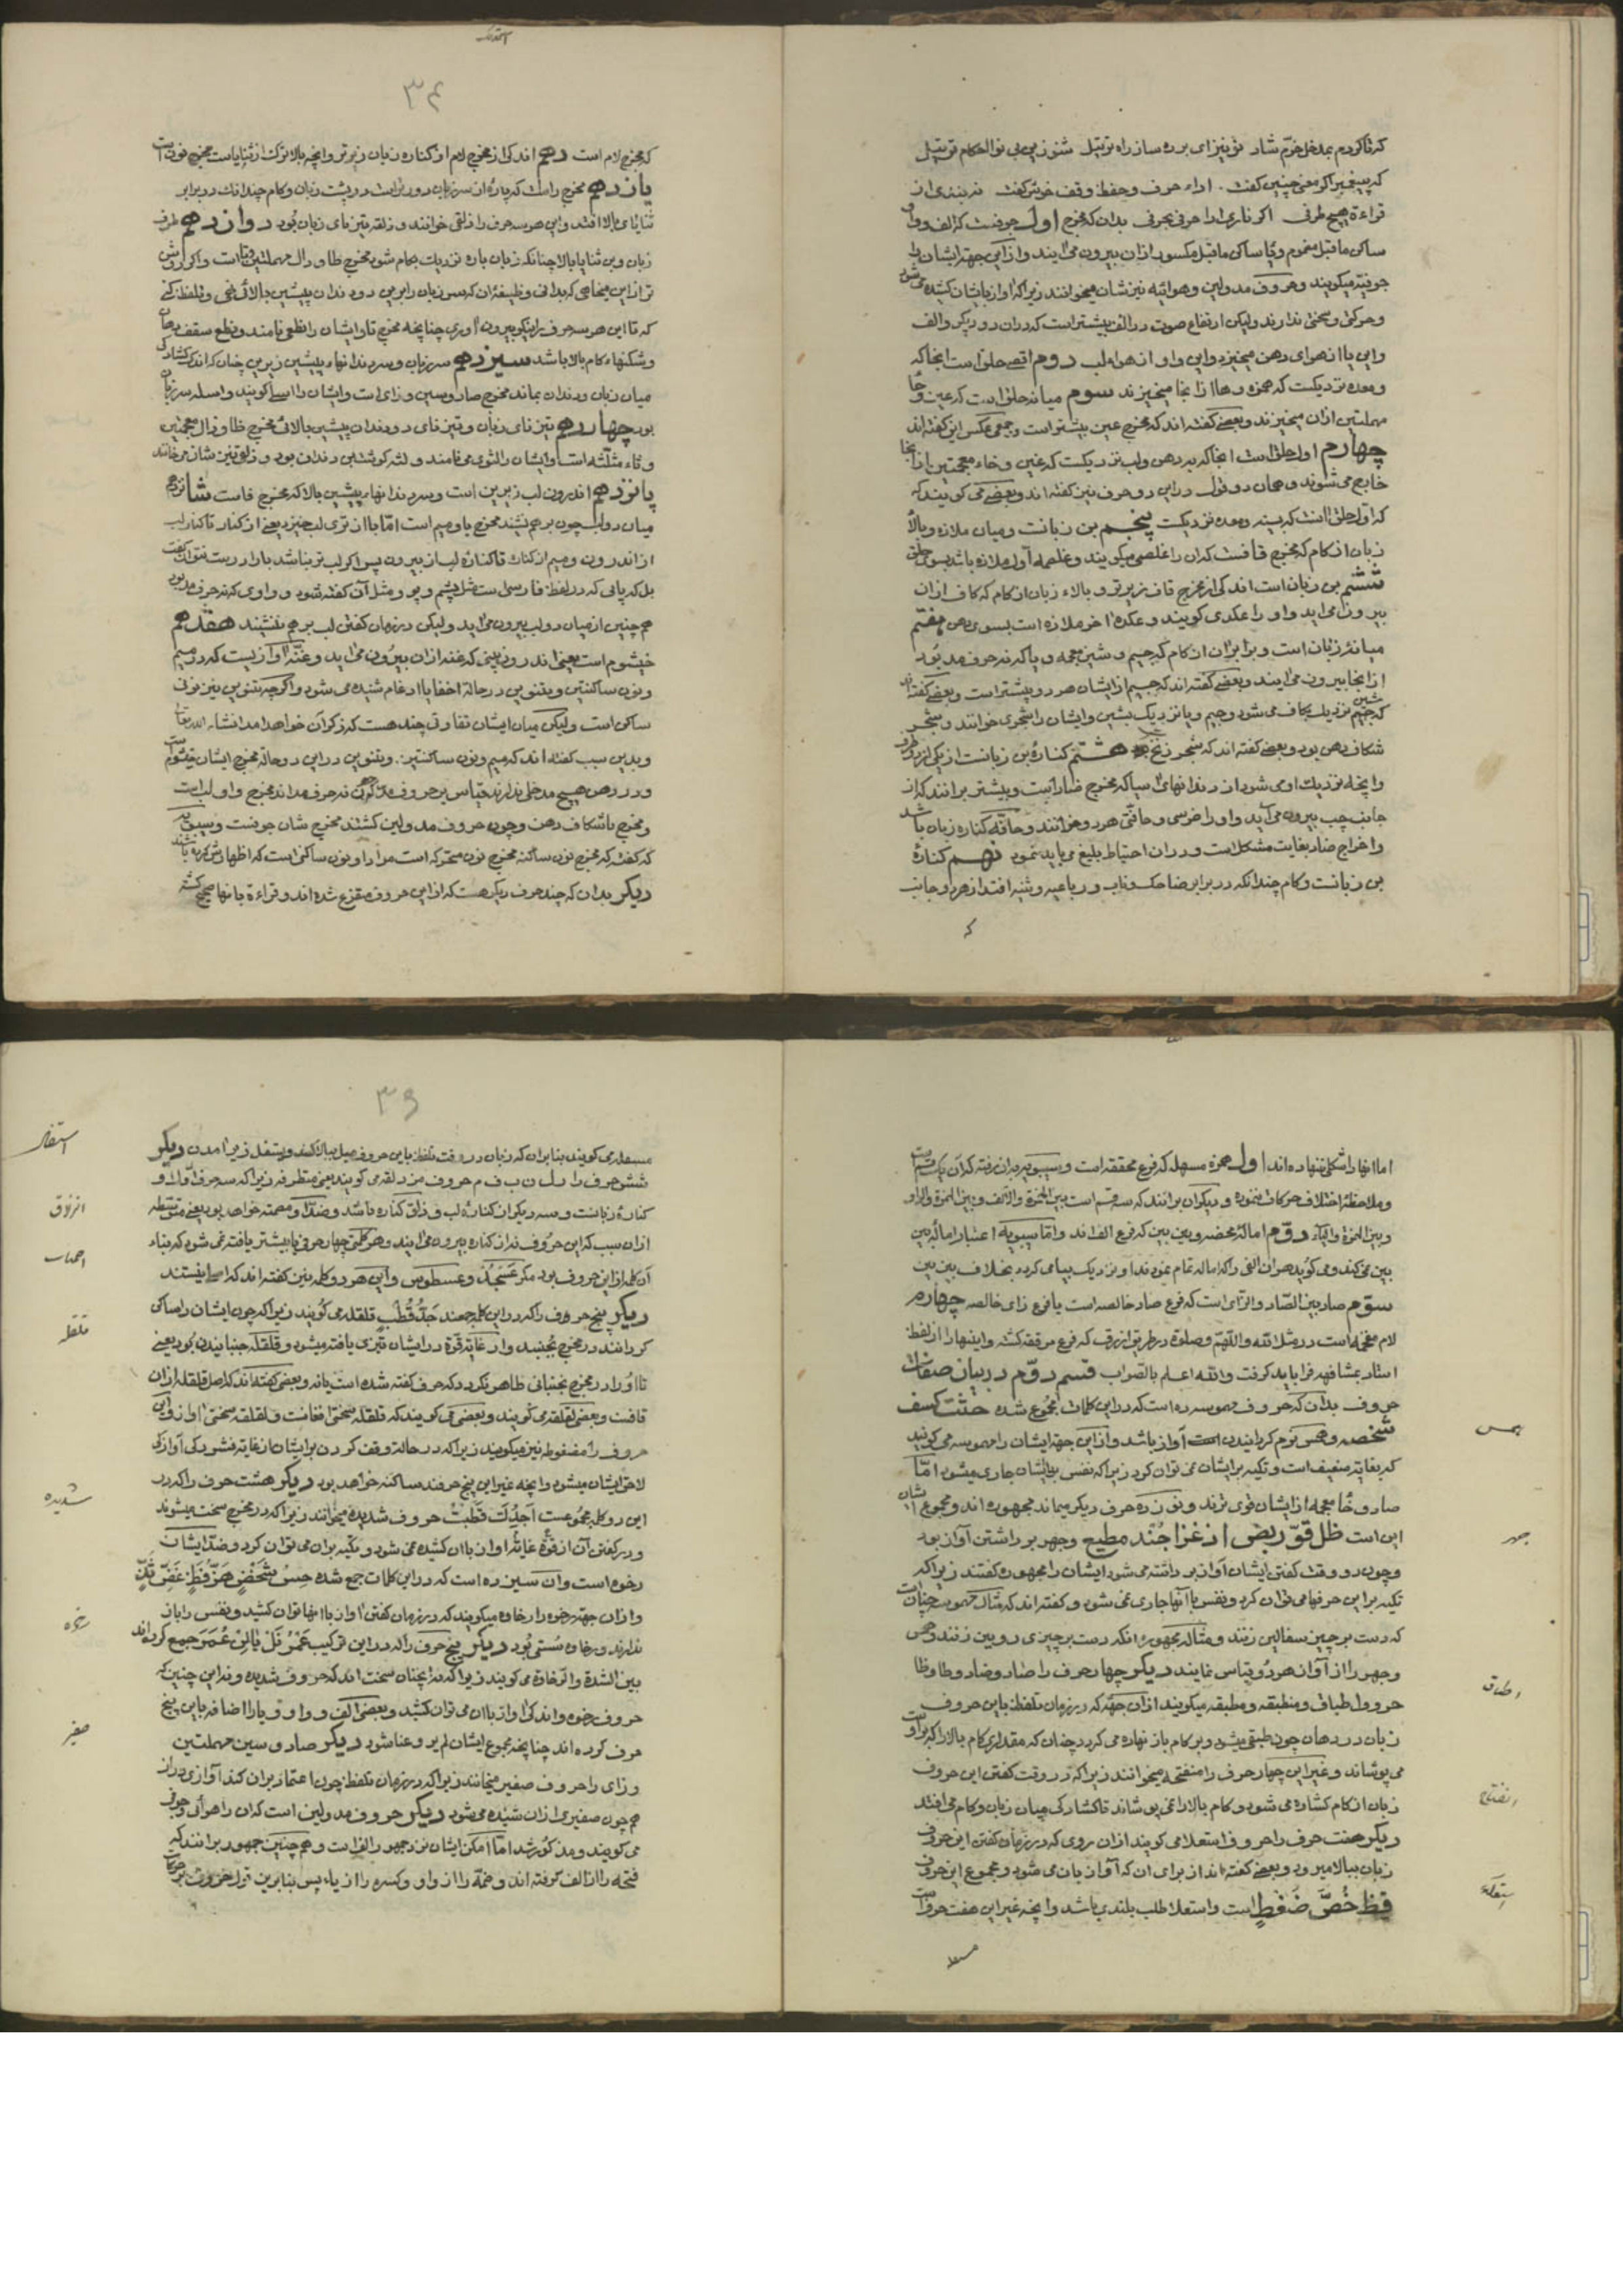 که تا کردم بمدخل خرّم شاد تو نیز ای برده ساز راه ترتیل شنو زین بی نوا احکام ترتیل
که پیغمبر اکو معنی چنین گفت اداء حرف و حفظ وقف خوش گفت نه بندی از
قراءة هیچ طرفی اکر ناری ادا حرفی بحرفی بدان که مخرج اول جوفست که الف و واو
ساکن ماقبل مضموم و یا ساکن ماقبل مکسور ازان بیرون می آیند و از این جهة ایشان را
جوفیه میکویند و حروف مد ولین و هوائیه نیز شان میخوانند زیرا که اواز بایشان کشیده می شود
و حرکتی و سختی ندارند ولیکن ارتفاع صوت در الف بیشتر است که دران دو دیکر والف
واین یا از هوای دهن میخیزد واین واو از هواء لب دوم اقصی حلق است انجا که
ومعده نزدیکست که همزه وها از انجا میخیزند سوم میانه حلق است که عین وحا
مهملتین ازان میخیزند وبعضی کفته اند که مخرج عین بیشتر است وجمعی عکس این کفته اند
چهارم اول حلق است انجا که بدهن ولب نزدیکست که غین وخاء معجمتین از انجا
خارج می شوند وهمان دو قول دراین دو حرف نیز کفته اند وبعضی می کویند که
که اول حلق انست که بسینه ومعده نزدیکست پنجم بن زبانست ومیان ملازه وبالاء
زبان از کام که مخرج قافست که ان را غلصمی میکویند وغلصمه اول ملازه باشد بسوی حلق
ششم بن زبان است اندکی از مخرج قاف زیرتر و بالاء زبان از کام که کاف ازان
بیرون می اید واو را عکدی کویند وعکده اخر ملازه است بسوی دهن هفتم
میانه زبان است وبرابر ان از کام که جیم وشین معجمه ویا که نه حرف مد بود
از انجا بیرون می ایند وبعضی کفته اند که جیم از ایشان هر دو پیشتر است وبعضی کفته اند
که جیم نزدیک بکاف می شود وجیم ویا نزدیک بشین وایشان را شجری خوانند وشجر
شکاف دهن بود وبعضی کفته اند که شجر زنخ هشتم کناره بن زبانست از یکی از دو طرف
وانچه نزدیک او می شود از دندانهای آسیا که مخرج ضاد است وبیشتر برانند که از
جانب چپ بیرون می آید واو را ضرسی وحافّی هر دو خوانند وحافه کناره زبان باشد
واخراج ضاد بغایت مشکل است ودران احتیاط بلیغ می باید نمود نهم کنارهٔ
بن زبانست وکام چندانکه در برابر ضاحک وناب ورباعیه وثنیه افتد از هر دو جانب
که
۳۴
که مخرج لام است دهم اندکی از مخرج لام از کناره زبان زیرتر وانچه بالاتر است از ثنایا است مخرج نون است
یازدهم مخرج راست که پاره از سر زبان دورتر است در پشت زبان وکام چندانک در برابر
ثنایای بالا افتد واین هر سه حرف را ذلقی خوانند وذلقه تیزنای زبان بود دوازدهم طرف
زبان وبن ثنایا بالا چنانکه زبان پاره نزدیک بکام شود مخرج طا ودال مهملتین وتا است
که تا این هر سه حرف را نیکو بیرون آوری چنانچه مخرج تا وایشان را نطعی نامند ونطع سقف دهان
وشکنهاء کام بالا باشد سیزدهم سر زبان وسر دندانهاء پیشین زیرین چنان که اندک کشادکی
میان زبان ودندان بماند مخرج صاد وسین وزای است وایشان را اسلی کویند واسله سر زبان
بود چهاردهم تیزنای زبان وتیزنای دو دندان پیشین بالائی مخرج ظا وذال معجمتین
وثاء مثلثه است وایشان را لثوی می نامند ولثه کوشت بن دندان بود
پانزدهم اندرون لب زیرین است وسر دندانهاء پیشین بالا که مخرج فاست شانزدهم
میان دو لب چون بر هم نشیند مخرج با ومیم است امّا با از تری لب خیزد یعنی از کنار تا کنار لب
از اندرون ومیم از کنار تا کناره لب از بیرون پس اکر لب تر نباشد با را درست نتوان کفت
هم چنین از میان دو لب بیرون می اید ولیکن در زمان کفتن لب بر هم ننشیند هفدهم
خیشوم است یعنی اندرون بینی که غنه ازان بیرون می اید وغنّه آوازیست که در میم
ونون ساکنتین وتنوین در حالة اخفا یا ادغام شنیده می شود واکر چه تنوین نیز نونی
ساکن است ولیکن میان ایشان تفاوتی چند هست که ذکر آن خواهد امد انشاء الله تعالی
وبدین سبب کفته اند که میم ونون ساکنتین وتنوین دراین دو حالة مخرج ایشان خیشوم است
ومخرج با شکاف دهن وچون حروف مد ولین کشتند مخرج شان جوفست وسیبویه
که کفته که مخرج نون ساکنه مخرج نون متحرکه است مراد او نون ساکنی است که اظهارش کرده باشند
دیکر بدان که چند حرف دیکر هست که از این حروف متفرع شده اند وقراءة بانها صحیح کشته
اما انها را شکلی ننهاده اند اول همزه مسهله که فرع محققه است وسیبویه بران رفته که آن یک قسم است
وملاحظهٔ اختلاف حرکات ننموده ودیکران برانند که سه قسم است بین الهمزة والالف وبین الهمزة والواو
وبین الهمزة والیاء دوّم امالهٔ محضه وبین بین که فرع الف اند وامّا سیبویه اعتبار امالهٔ بین
بین نمی کند ومی کوید هر ان الفی را که اماله تمام نمودند او نزدیک بیا می کردد بخلاف بین بین
سوّم صاد بین الصّاد والزّای است که فرع صاد خالصه است یا فرع زای خالصه چهارم
لام مفخمه است در مثل الله واللّهم وصلوة در طریق ازرق که فرع مرققه کشته واینها را از لفظ
استاد بمشافهه فرا باید کرفت والله اعلم بالصّواب قسم دوّم در بیان صفات
حروف بدان که حروف مهموسه ده است که دراین کلمات مجموع شده حثّت کسف
شخصه وهمس نرم کردانیدن آواز باشد واز این جهة ایشان را مهموسه می کویند
که بغایة ضعیف است وتکیه بر ایشان نمی توان کرد زیرا که نفس با ایشان جاری میشود امّا
صاد وخاء معجمه از ایشان قوی ترند ونوزده حرف دیکر میماند مجهوره اند ومجموع ایشان
این است ظل قوّ ربض اذ غزا جُند مطیع وجهر برداشتن آواز بود
وچون در وقت کفتن ایشان آواز برداشته می شود ایشان را مجهوره کفتند زیرا که
تکیه بر این حرفها می توان کرد ونفس با آنها جاری نمی شود وکفته اند که مثال مهموسه چنان است
که دست بر چیز سفالین زنند ومثال مجهوره انکه دست بر چیزی رویین زنند وهمس
وجهر را از آواز هر دو قیاس نمایند دیکر چهار حرف را صاد وضاد وطا وظا
حروف اطباق ومنطبقه ومطبقه میکویند ازان جهة که در زمان تلفظ باین حروف
زبان در دهان چون طبقی میشود وبر کام باز نهاده می کردد چندان که مقداری کام بالا را که برابر او است
می پوشاند وغیر این چهار حرف را منفتحه میخوانند زیرا که در وقت کفتن این حروف
زبان از کام کشاده می شود وکام بالا را نمی پوشاند تا کشادکی میان زبان وکام می افتد
دیکر هفت حرف را حروف استعلا می کویند ازان روی که در زمان کفتن این حروف
زبان ببالا میرود وبعضی کفته اند از برای ان که آواز بان می شود ومجموع این حروف
قِظ خُصَّ ضَغطٍ است واستعلا طلب بلندی باشد وانچه غیر این هفت حرف است
همس
جهر
اطباق
انفتاح
استعلاء
۳۵
مستفله می کویند بنا بران که زبان در وقت تلفظ باین حروف میل ببالا نکند وتسفل زیر امدن دیکر
شش حرف را ر ل ن ب ف م حروف مزلقه می کویند یعنی متطرفه زیرا که سه حرف اول از
کنارهٔ زبانست وسه دیکر از کنارهٔ لب وذلق کناره باشد وضد او مصمته خواهد بود
ازان سبب که این حروف نه از کناره بیرون می ایند وهر کلمتی چهار حرفی یا بیشتر یافته نمی شود که بناء
آن کلمه از این حروف بود مکر عَسجَدُ وعسطوس واین هر دو کلمه نیز کفته اند که اصلی نیستند
دیکر پنج حروف را که دراین کلمه جمعند جَدُّ قُطبٍ قلقله می کویند زیرا که چون ایشان را ساکن
کردانند در مخرج بجنبد واز غایة قوّة در ایشان تیزی یافته میشود وقلقله جنبانیدن بود یعنی
تا او را در مخرج نجنبانی ظاهر نکردد که حرف کفته شده است یا نه وبعضی کفته اند که اصل قلقله ازان
قافست وبعضی لقلقه می کویند وبعضی می کویند که قلقله سختی افغانست ولقلقه سختی اواز واین
حروف را مضغوطه نیز میکویند زیرا که در حالة وقف کردن بر ایشان از غایة فشردکی آوازی
لاحق ایشان میشود وانچه غیر این پنج حرفند ساکنه خواهد بود دیکر هشت حرف را که در
این دو کلمه مجموعست اَجَدُكَ قَطَبتَ حروف شدیده میخوانند زیرا که در مخرج سخت میشوند
ودر کفتن آن از قوّة غایة اواز باان کشیده نمی شود وتکیه بران می توان کرد وضد ایشان
رخوه است وان سیزده است که دراین کلمات جمع شده
وازان جهة رخوه را رخاوه میکویند که در زمان کفتن اواز باانها توان کشید ونفس را باز
ندارند ورخاوه سُستی بُود دیکر پنج حرف را که دراین ترکیب جمع کرداند
بین الشدة والرّخاوة می کویند زیرا که نه انچنان سخت اند که حروف شدیده ونه این چنین که
حروف رخوه واندکی اواز باان می توان کشید وبعضی الف وواو ویا را اضافه باین پنج
حرف کرده اند چنانچه مجموع ایشان لم یروعنا شود دیکر صاد وسین مهملتین
وزای را حروف صفیر میخوانند زیرا که در زمان تلفظ چون اعتماد بران کند آوازی دراز
هم چون صفیری ازان شنیده می شود دیکر حروف مد ولین است که ان را هوائی وجوفی
می کویند ومذکور شد امّا امکن ایشان نزد جمهور الف است وهم چنین جمهور برانند که
فتحه را از الف کرفته اند وضمّه را از واو وکسره را از یاء پس بنا برین قول
استفال
انزلاق
اصمات
قلقله
شدیده
رخوه
صفیر